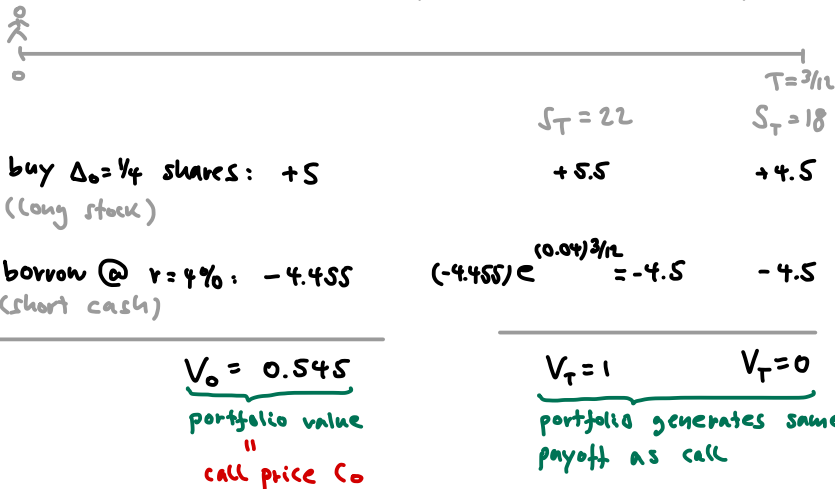 0
T = 3/12
S_T = 22 S_T = 18
buy Δ₀ = 1/4 shares: +5 +5.5 +4.5
(long stock)
borrow @ r = 4%: -4.455 (-4.455) e^(0.04)3/12 = -4.5 -4.5
(short cash)
V₀ = 0.545 V_T = 1 V_T = 0
portfolio value portfolio generates same
" payoff as call
call price C₀